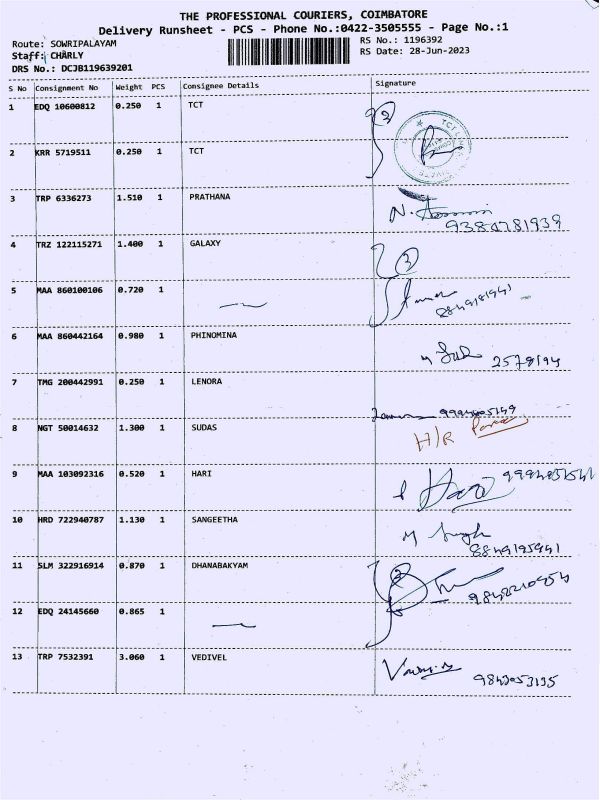 THE PROFESSIONAL COURIERS, COIMBATORE
Delivery Runsheet - PCS - Phone No.:0422-3505555 - Page No.:1
Route: SOWRIPALAYAM RS No.: 1196392
Staff: CHARLY RS Date: 28-Jun-2023
DRS No.: DCJB119639201
S No Consignment No Weight PCS Consignee Details Signature
1 EDQ 10600812 0.250 1 TCT
2
2 KRR 5719511 0.250 1 TCT
3 TRP 6336273 1.510 1 PRATHANA
9384781939
4 TRZ 122115271 1.400 1 GALAXY
5 MAA 860100106 0.720 1
6 MAA 860442164 0.980 1 PHINOMINA
7 TMG 200442991 0.250 1 LENORA
8 NGT 50014632 1.300 1 SUDAS
H/R
9 MAA 103092316 0.520 1 HARI
10 HRD 722940787 1.130 1 SANGEETHA
11 SLM 322916914 0.870 1 DHANABAKYAM
2
12 EDQ 24145660 0.865 1
13 TRP 7532391 3.060 1 VEDIVEL